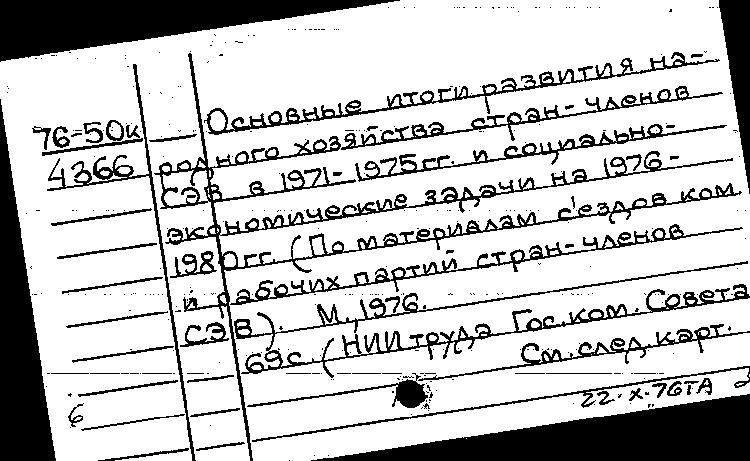 Основные итоги развития на-
76-50к
родного хозяйства стран-членов
4366
СЭВ в 1971-1975гг. и социально-
экономические задачи на 1976-
1980гг. (По материалам с'ездов ком.
и рабочих партий стран-членов
СЭВ). М., 1976.
69с. (НИИ труда Гос.ком.Совета
См.след.карт.
6
22.X.76ТА